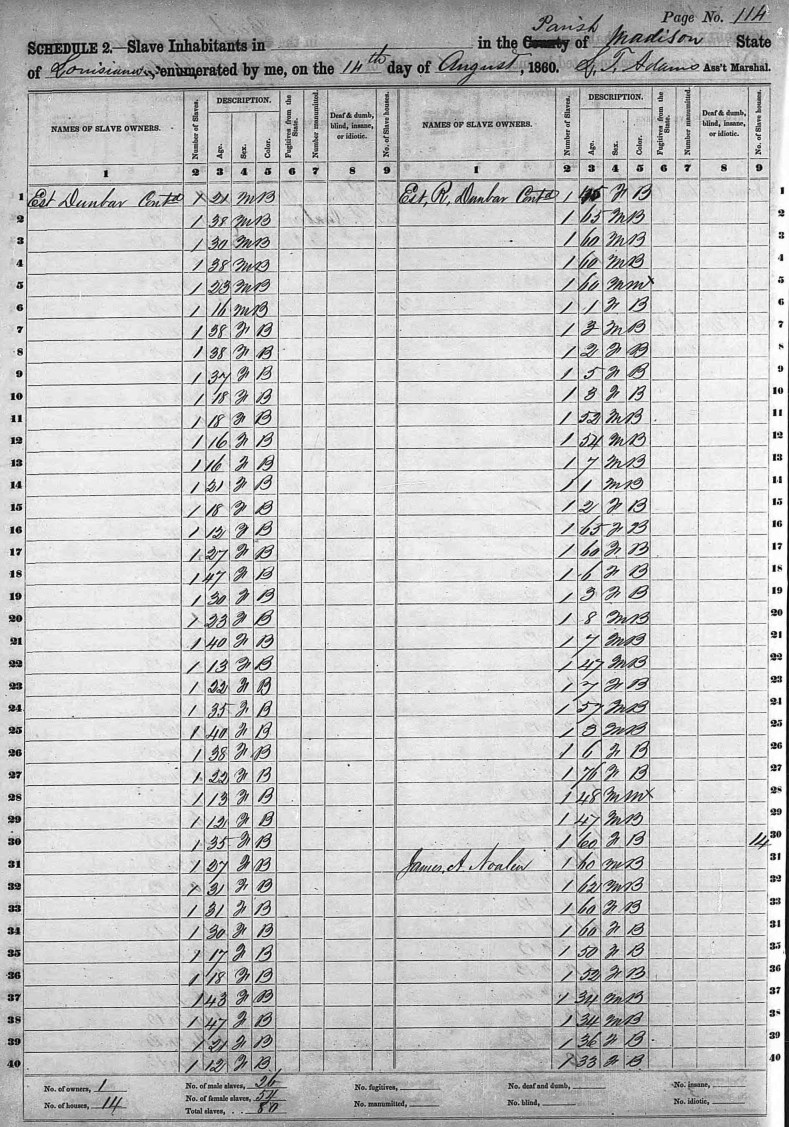 Page No. 114
SCHEDULE 2.—Slave Inhabitants in in the County of Parish Madison State
of Louisiana, enumerated by me, on the 14th day of August, 1860. L. T. Adams Ass't Marshal.
NAMES OF SLAVE OWNERS. Number of Slaves. DESCRIPTION. Age. Sex. Color. Fugitives from the State. Number manumitted. Deaf & dumb, blind, insane, or idiotic. No. of Slave houses. NAMES OF SLAVE OWNERS. Number of Slaves. DESCRIPTION. Age. Sex. Color. Fugitives from the State. Number manumitted. Deaf & dumb, blind, insane, or idiotic. No. of Slave houses.
1 2 3 4 5 6 7 8 9 1 2 3 4 5 6 7 8 9
1 Est Dunbar Contd 1 21 M B Est, R, Dunbar Contd 1 F B 1
2 1 38 M B 1 65 M B 2
3 1 30 M B 1 60 M B 3
4 1 38 M B 1 60 M B 4
5 1 23 M B 1 60 M Mx 5
6 1 16 M B 1 1 F B 6
7 1 38 F B 1 3 M B 7
8 1 38 F B 1 2 F B 8
9 1 37 F B 1 5 F B 9
10 1 18 F B 1 3 F B 10
11 1 18 F B 1 52 M B 11
12 1 16 F B 1 54 M B 12
13 1 16 F B 1 7 M B 13
14 1 21 F B 1 1 M B 14
15 1 18 F B 1 2 F B 15
16 1 12 F B 1 65 F B 16
17 1 27 F B 1 60 F B 17
18 1 47 F B 1 6 F B 18
19 1 30 F B 1 3 F B 19
20 1 23 F B 1 8 M B 20
21 1 40 F B 1 7 M B 21
22 1 13 F B 1 47 M B 22
23 1 22 F B 1 7 F B 23
24 1 35 F B 1 57 M B 24
25 1 40 F B 1 3 M B 25
26 1 38 F B 1 6 F B 26
27 1 22 F B 1 76 F B 27
28 1 13 F B 1 48 M Mx 28
29 1 12 F B 1 47 M B 29
30 1 35 F B 1 60 F B 14 30
31 1 27 F B James, A 1 60 M B 31
32 1 31 F B 1 62 M B 32
33 1 31 F B 1 60 F B 33
34 1 30 F B 1 60 F B 34
35 1 17 F B 1 50 F B 35
36 1 18 F B 1 52 F B 36
37 1 43 F B 1 34 M B 37
38 1 47 F B 1 34 M B 38
39 1 21 F B 1 36 F B 39
40 1 12 F B 1 33 F B 40
No. of owners, 1 No. of male slaves, 26 No. fugitives, No. deaf and dumb, No. insane,
No. of houses, 14 No. of female slaves, 54 No. manumitted, No. blind, No. idiotic,
Total slaves, 80